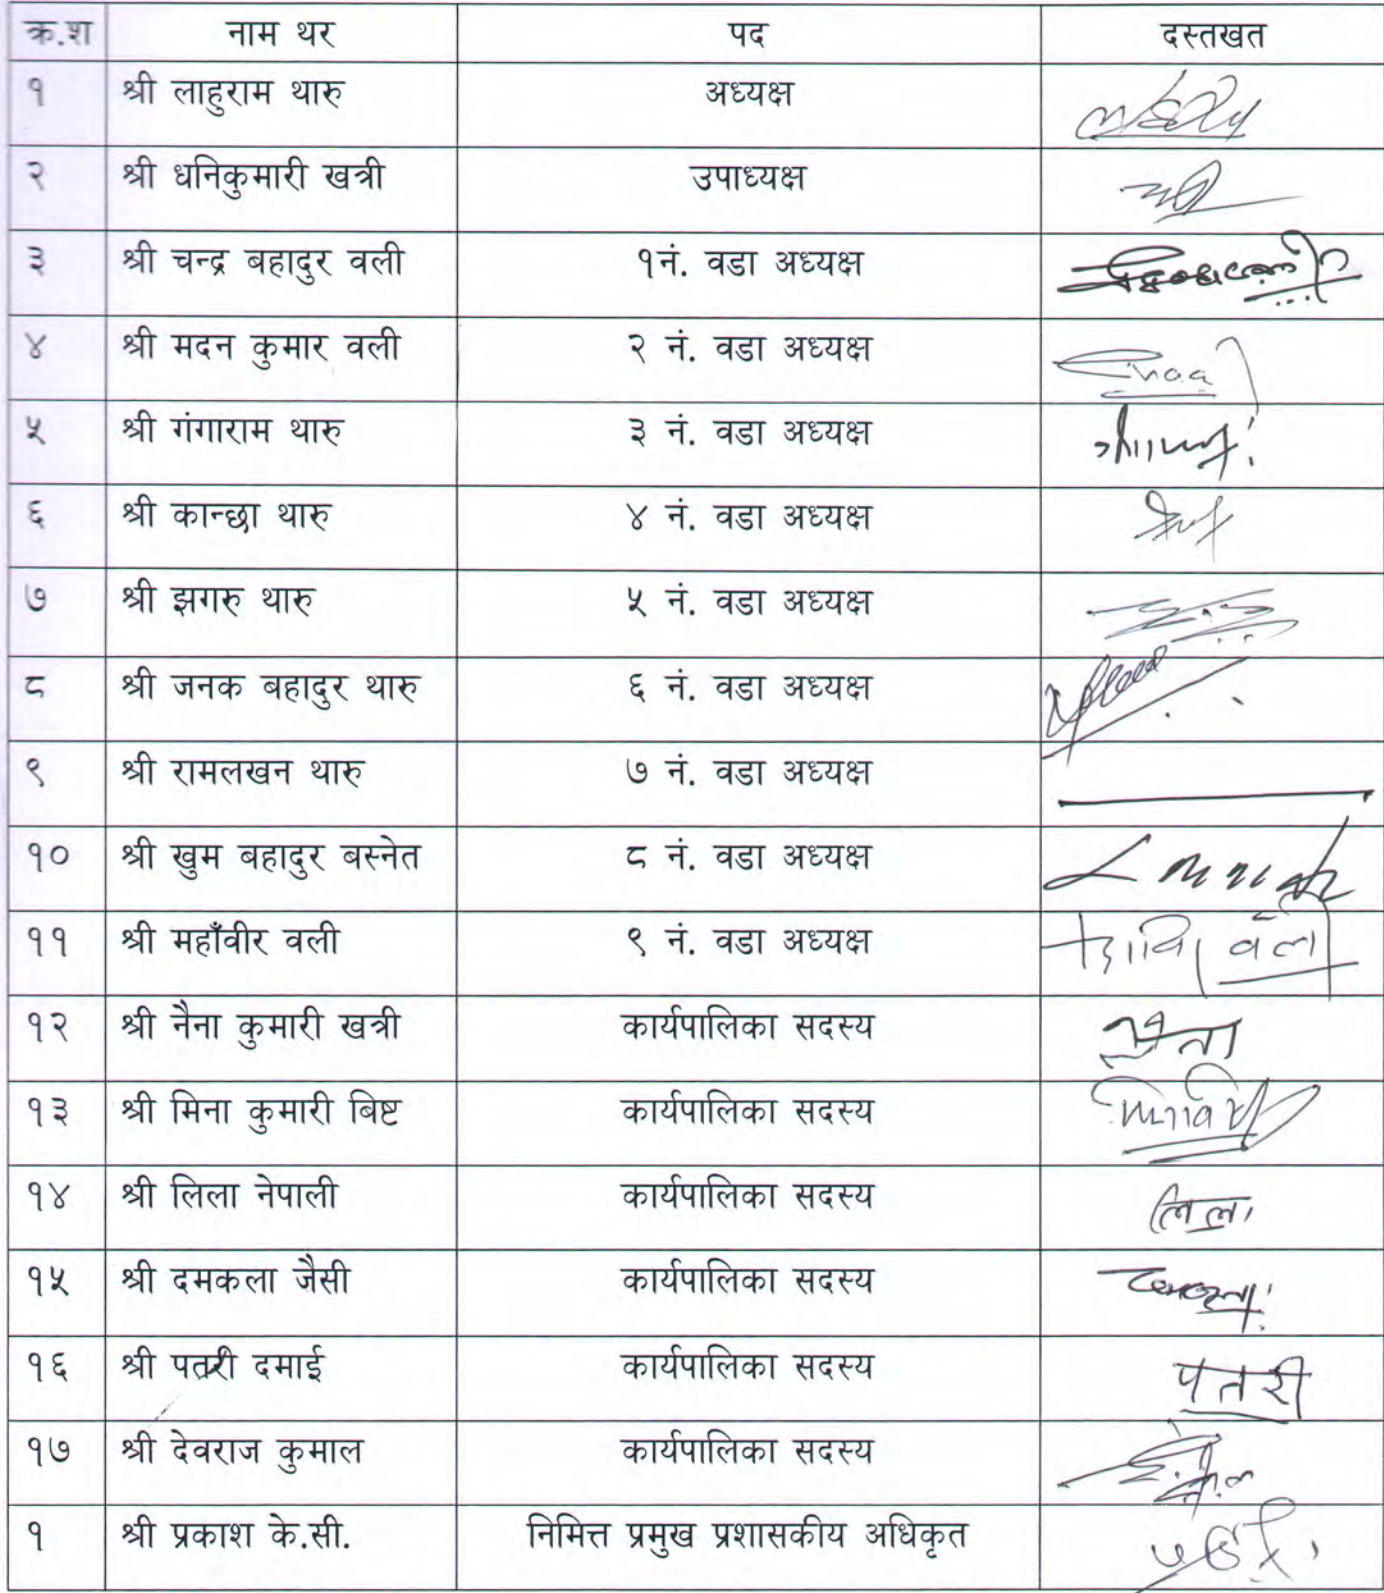 क्र.श नाम थर पद दस्तखत
१ श्री लाहुराम थारु अध्यक्ष
२ श्री धनिकुमारी खत्री उपाध्यक्ष
३ श्री चन्द्र बहादुर वली १नं. वडा अध्यक्ष
४ श्री मदन कुमार वली २ नं. वडा अध्यक्ष
५ श्री गंगाराम थारु ३ नं. वडा अध्यक्ष
६ श्री कान्छा थारु ४ नं. वडा अध्यक्ष
७ श्री झगरु थारु ५ नं. वडा अध्यक्ष
८ श्री जनक बहादुर थारु ६ नं. वडा अध्यक्ष
९ श्री रामलखन थारु ७ नं. वडा अध्यक्ष
१० श्री खुम बहादुर बस्नेत ८ नं. वडा अध्यक्ष
११ श्री महाँवीर वली ९ नं. वडा अध्यक्ष
१२ श्री नैना कुमारी खत्री कार्यपालिका सदस्य
१३ श्री मिना कुमारी बिष्ट कार्यपालिका सदस्य
१४ श्री लिला नेपाली कार्यपालिका सदस्य लिला
१५ श्री दमकला जैसी कार्यपालिका सदस्य
१६ श्री पतरी दमाई कार्यपालिका सदस्य पतरी
१७ श्री देवराज कुमाल कार्यपालिका सदस्य
१ श्री प्रकाश के.सी. निमित्त प्रमुख प्रशासकीय अधिकृत